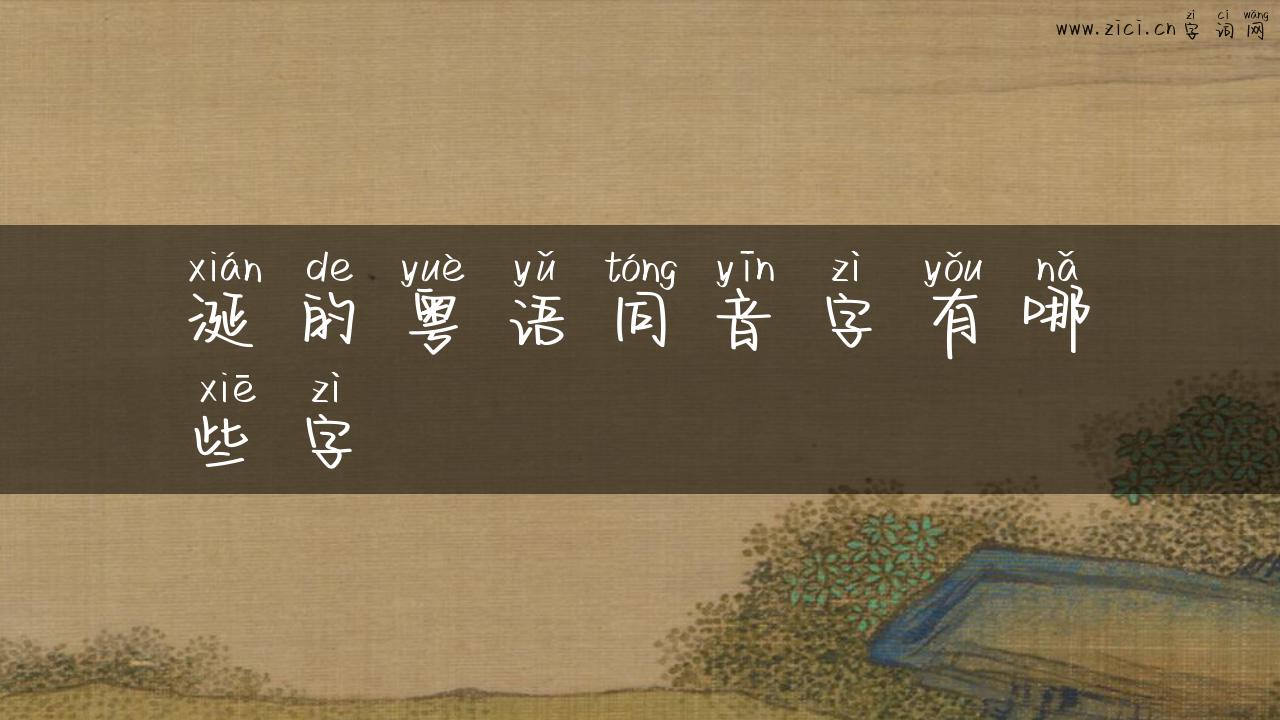 zì cí wǎng
www.zici.cn字词网
xián de yuè yǔ tóng yīn zì yǒu nǎ
涎的粤语同音字有哪
xiē zì
些字